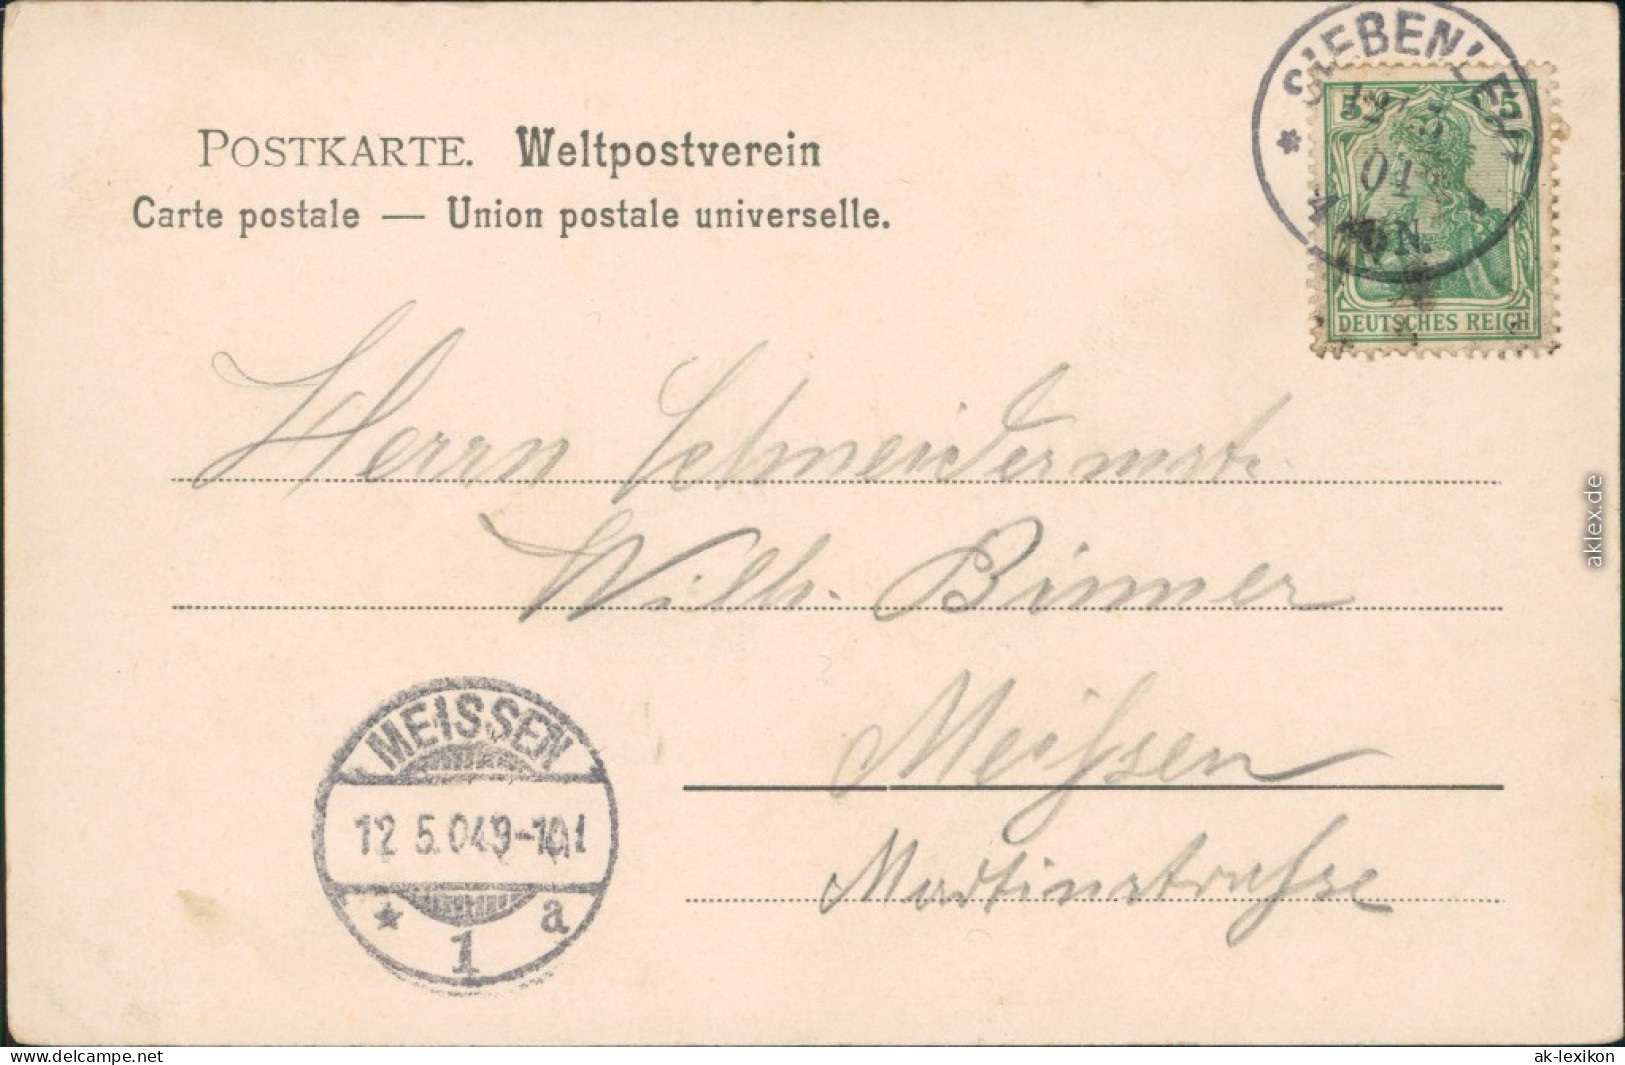 SIEBENLEHN
12 5
04
N.
5 5
DEUTSCHES REICH
POSTKARTE. Weltpostverein
Carte postale — Union postale universelle.
Herrn Schneidermstr.
Wilh. Binner
Meißen
Martinstraße
MEISSEN
12 5.04 9-10V
* 1 a
aklex.de
www.delcampe.net
ak-lexikon